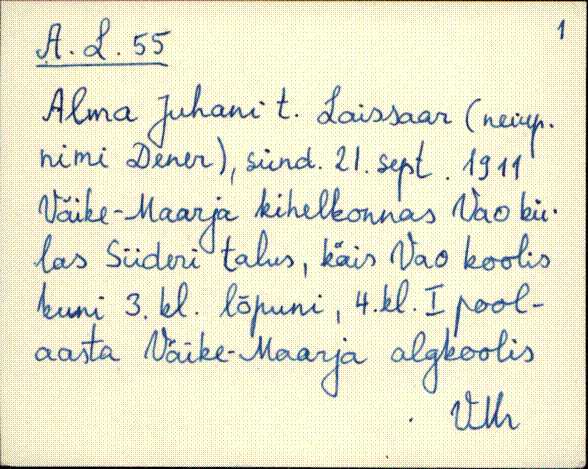 1
A. L. 55
Alma Juhani t. Laissaar (neiup.
nimi Dener), sünd. 21. sept. 1911
Väike-Maarja kihelkonnas Vao kü-
las Süderi talus, käis Vao koolis
kuni 3. kl. lõpuni, 4. kl. I pool-
aasta Väike-Maarja algkoolis